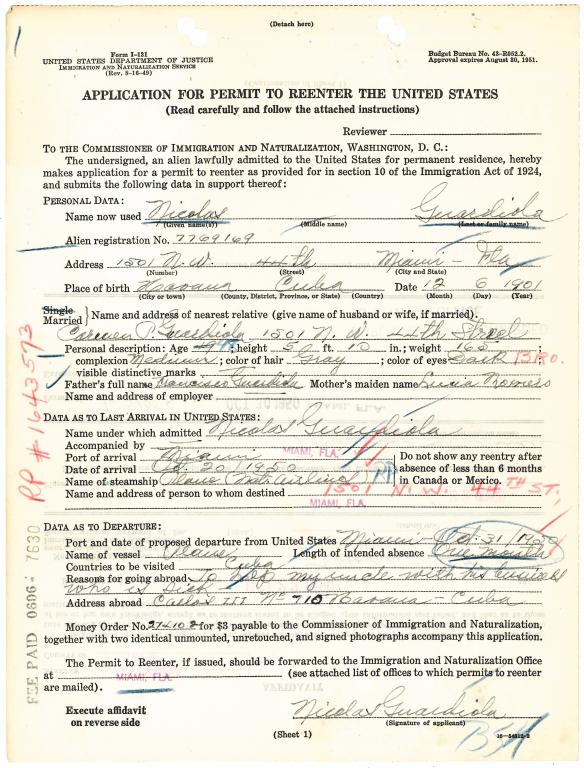 (Detach here)
Form I-131
UNITED STATES DEPARTMENT OF JUSTICE
IMMIGRATION AND NATURALIZATION SERVICE
(Rev. 8-16-49)
Budget Bureau No. 43-R052.2.
Approval expires August 30, 1951.
APPLICATION FOR PERMIT TO REENTER THE UNITED STATES
(Read carefully and follow the attached instructions)
Reviewer
TO THE COMMISSIONER OF IMMIGRATION AND NATURALIZATION, WASHINGTON, D. C.:
The undersigned, an alien lawfully admitted to the United States for permanent residence, hereby
makes application for a permit to reenter as provided for in section 10 of the Immigration Act of 1924,
and submits the following data in support thereof:
PERSONAL DATA:
Name now used Nicolas Guardiola
(Given name(s)) (Middle name) (Last or family name)
Alien registration No. 7769169
Address 1501 N.W. 44th Miami - Fla
(Number) (Street) (City and State)
Place of birth Havana Cuba Date 12 6 1901
(City or town) (County, District, Province, or State) (Country) (Month) (Day) (Year)
Single
Married } Name and address of nearest relative (give name of husband or wife, if married):
Carmen P. Guardiola 1501 N. W. 44th Street
Personal description: Age 49; height 5 ft. 10 in.; weight 165;
complexion Medium; color of hair Gray; color of eyes Dark BRO.
visible distinctive marks
Father's full name Francisco Guardiola Mother's maiden name Lucia
Name and address of employer
RP # 1643573
DATA AS TO LAST ARRIVAL IN UNITED STATES:
Name under which admitted Nicolas Guardiola
Accompanied by
Port of arrival Miami MIAMI, FLA.
Date of arrival Oct. 20/1950
Name of steamship Plane
Do not show any reentry after
absence of less than 6 months
in Canada or Mexico.
Name and address of person to whom destined 1501 N. W. 44TH ST,
MIAMI, FLA.
DATA AS TO DEPARTURE:
Port and date of proposed departure from United States Miami - Oct. 31/1950
Name of vessel Plane Length of intended absence One month
Countries to be visited Cuba
Reasons for going abroad To help my uncle with his business
who is sick
Address abroad Carlos III No 710 Havana - Cuba
FEE PAID 0696 7630
Money Order No. 274102 for $3 payable to the Commissioner of Immigration and Naturalization,
together with two identical unmounted, unretouched, and signed photographs accompany this application.
The Permit to Reenter, if issued, should be forwarded to the Immigration and Naturalization Office
at MIAMI, FLA. (see attached list of offices to which permits to reenter
are mailed).
Execute affidavit
on reverse side
Nicolas Guardiola
(Signature of applicant)
(Sheet 1)